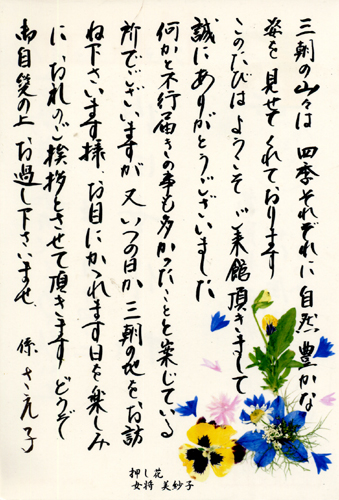 三朝の山々は 四季それぞれに自然豊かな
姿を見せてくれております
このたびはようこそ ご来館頂きまして
誠にありがとうございました
何かと不行届きの事も多かったことと案じている
所でございますが 又いつの日か 三朝の地をお訪
ね下さいます様、お目にかゝれます日を楽しみ
に お礼のご挨拶とさせて頂きます どうぞ
御自愛の上 お過し下さいませ 係 さえ子
押し花
女将 美妙子